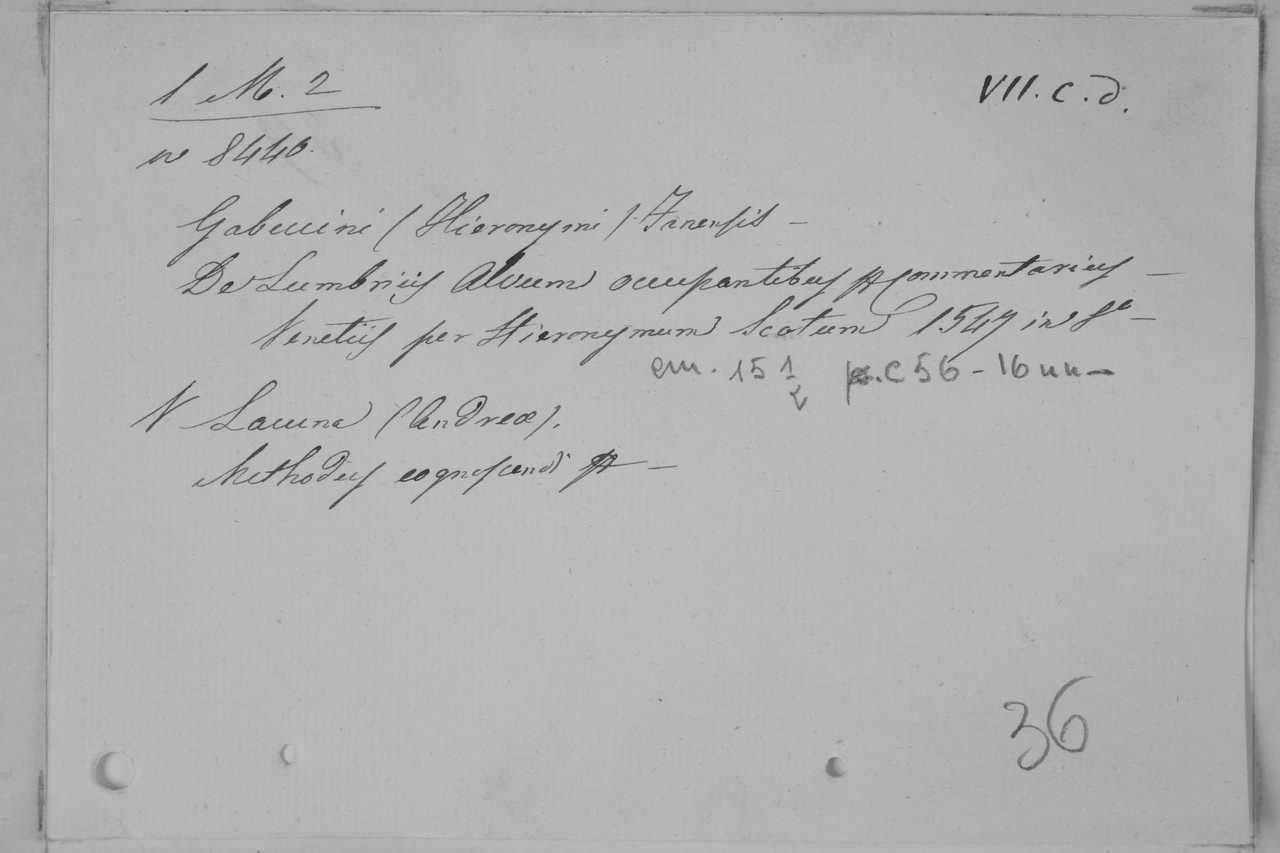 1 M. 2
VII. c. d.
nº 8440.
Gabuccini (Hieronymi) Fanensis —
De Lumbricis Alvum occupantibus commentarius —
Venetiis per Hieronymum Scotum 1547 in 8º —
cm. 15 1/2 p. c 56 - 16 nn —
V Lacuna (Andreæ).
Methodus cognoscendi —
36